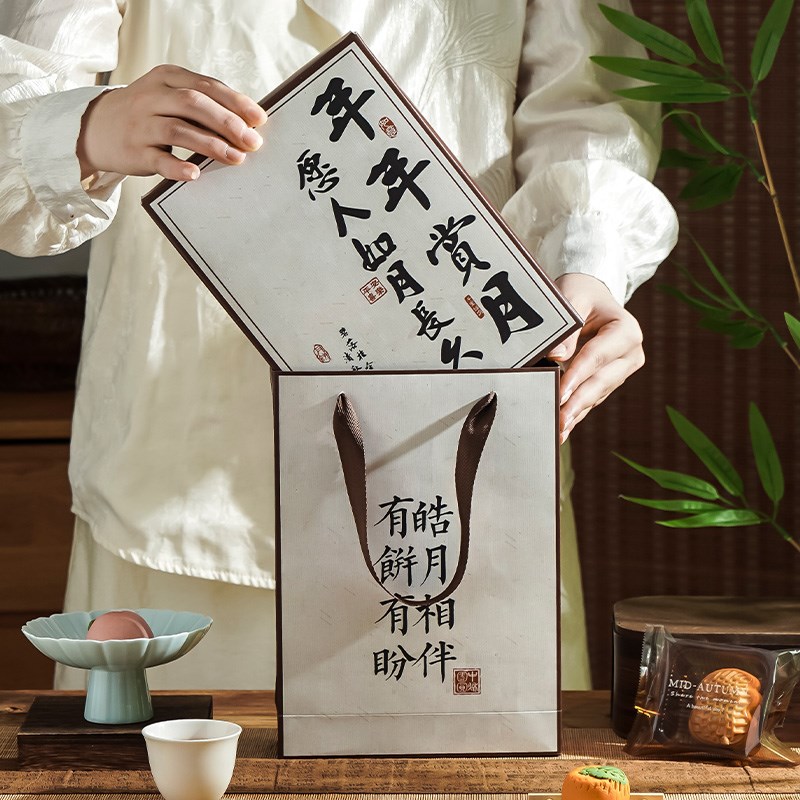 年年賞月
愿人如月長久
皓月相伴
有餅有盼
MID-AUTUMN